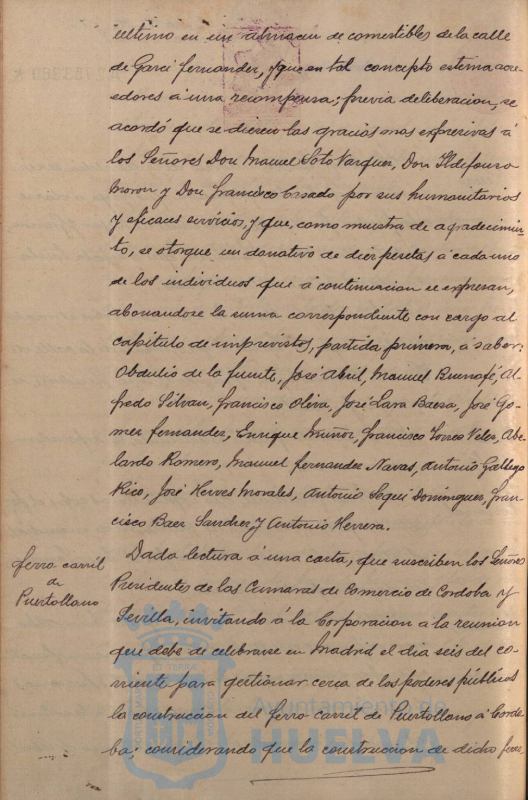 ultimo en un almacen de comestibles de la calle
de Garci fernandez, y que en tal concepto estima acre-
edores á una recompensa; previa deliberacion, se
acordó que se diesen las gracias mas expresivas á
los Señores Don Manuel Soto Vazquez, Don Ildefonso
Moron y Don francisco Casado por sus humanitarios
y eficaces servicios, y que, como muestra de agradecimien-
to, se otorgue un donativo de diez pesetas á cada uno
de los individuos que á continuacion se expresan,
abonandose la suma correspondiente con cargo al
capitulo de imprevistos, partida primera, á saber:
Obdulio de la fuente, José Abril, Manuel Buenafé, Al-
fredo Silvan, francisco Oliva, José Lara Baeza, José Go-
mez fernandez, Enrique Muñoz, francisco Torres Velez, Abe-
lardo Romero, Manuel fernandez Navas, Antonio Gallego
Rico, José Herves Morales, Antonio Sequi Dominguez, fran-
cisco Baez Sanchez y Antonio Herrera.
ferro carril
de
Puertollano
Dada lectura á una carta, que suscriben los Señores
Presidentes de las Camaras de Comercio de Cordoba y
Sevilla, invitando á la Corporacion a la reunion
que debe de celebrarse en Madrid el dia seis del co-
rriente para gestionar cerca de los poderes públicos
la contruccion del ferro carril de Puertollano á Cordo-
ba; considerando que la construccion de dicho ferro
Ayuntamiento de
HUELVA